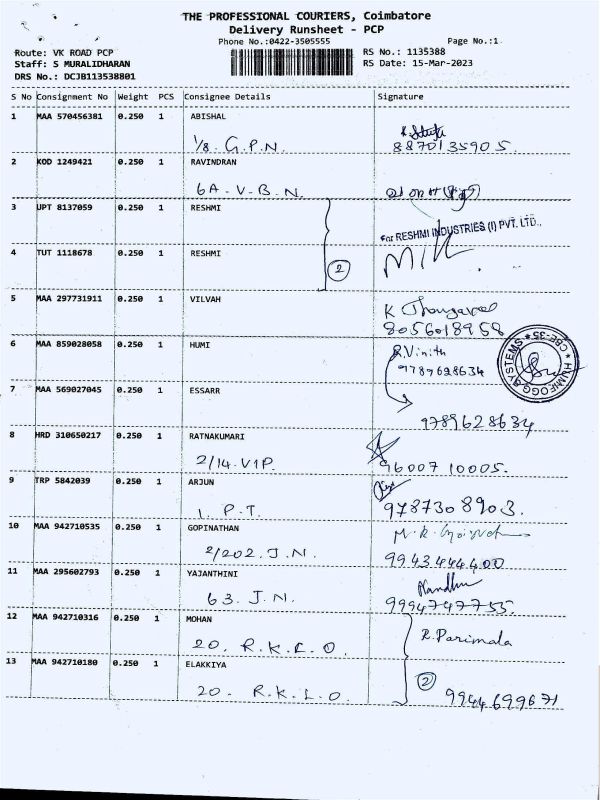 THE PROFESSIONAL COURIERS, Coimbatore
Delivery Runsheet - PCP
Phone No.:0422-3505555 Page No.:1
Route: VK ROAD PCP RS No.: 1135388
Staff: S MURALIDHARAN RS Date: 15-Mar-2023
DRS No.: DCJB113538801
S No Consignment No Weight PCS Consignee Details Signature
1 MAA 570456381 0.250 1 ABISHAL
1/8. G.P.N. 8870135905.
2 KOD 1249421 0.250 1 RAVINDRAN
6A. V. B. N.
3 UPT 8137059 0.250 1 RESHMI
For RESHMI INDUSTRIES (I) PVT. LTD.,
4 TUT 1118678 0.250 1 RESHMI
2
5 MAA 297731911 0.250 1 VILVAH
K Thangavel
8056018958
6 MAA 859028058 0.250 1 HUMI R.Vinith
9789628634
HUMIFOGG SYSTEMS * CBE-35 *
7 MAA 569027045 0.250 1 ESSARR
9789628634
8 HRD 310650217 0.250 1 RATNAKUMARI
2/14. V1P. 9600710005.
9 TRP 5842039 0.250 1 ARJUN
1. P.T. 9787308903.
10 MAA 942710535 0.250 1 GOPINATHAN
2/202. J.N. 9943444400
11 MAA 295602793 0.250 1 YAJANTHINI Nandhu
63. J.N. 9994747755.
12 MAA 942710316 0.250 1 MOHAN
20. R.K.L.O. R.Parimala
13 MAA 942710180 0.250 1 ELAKKIYA
20. R.K.L.O. 2 9944699671